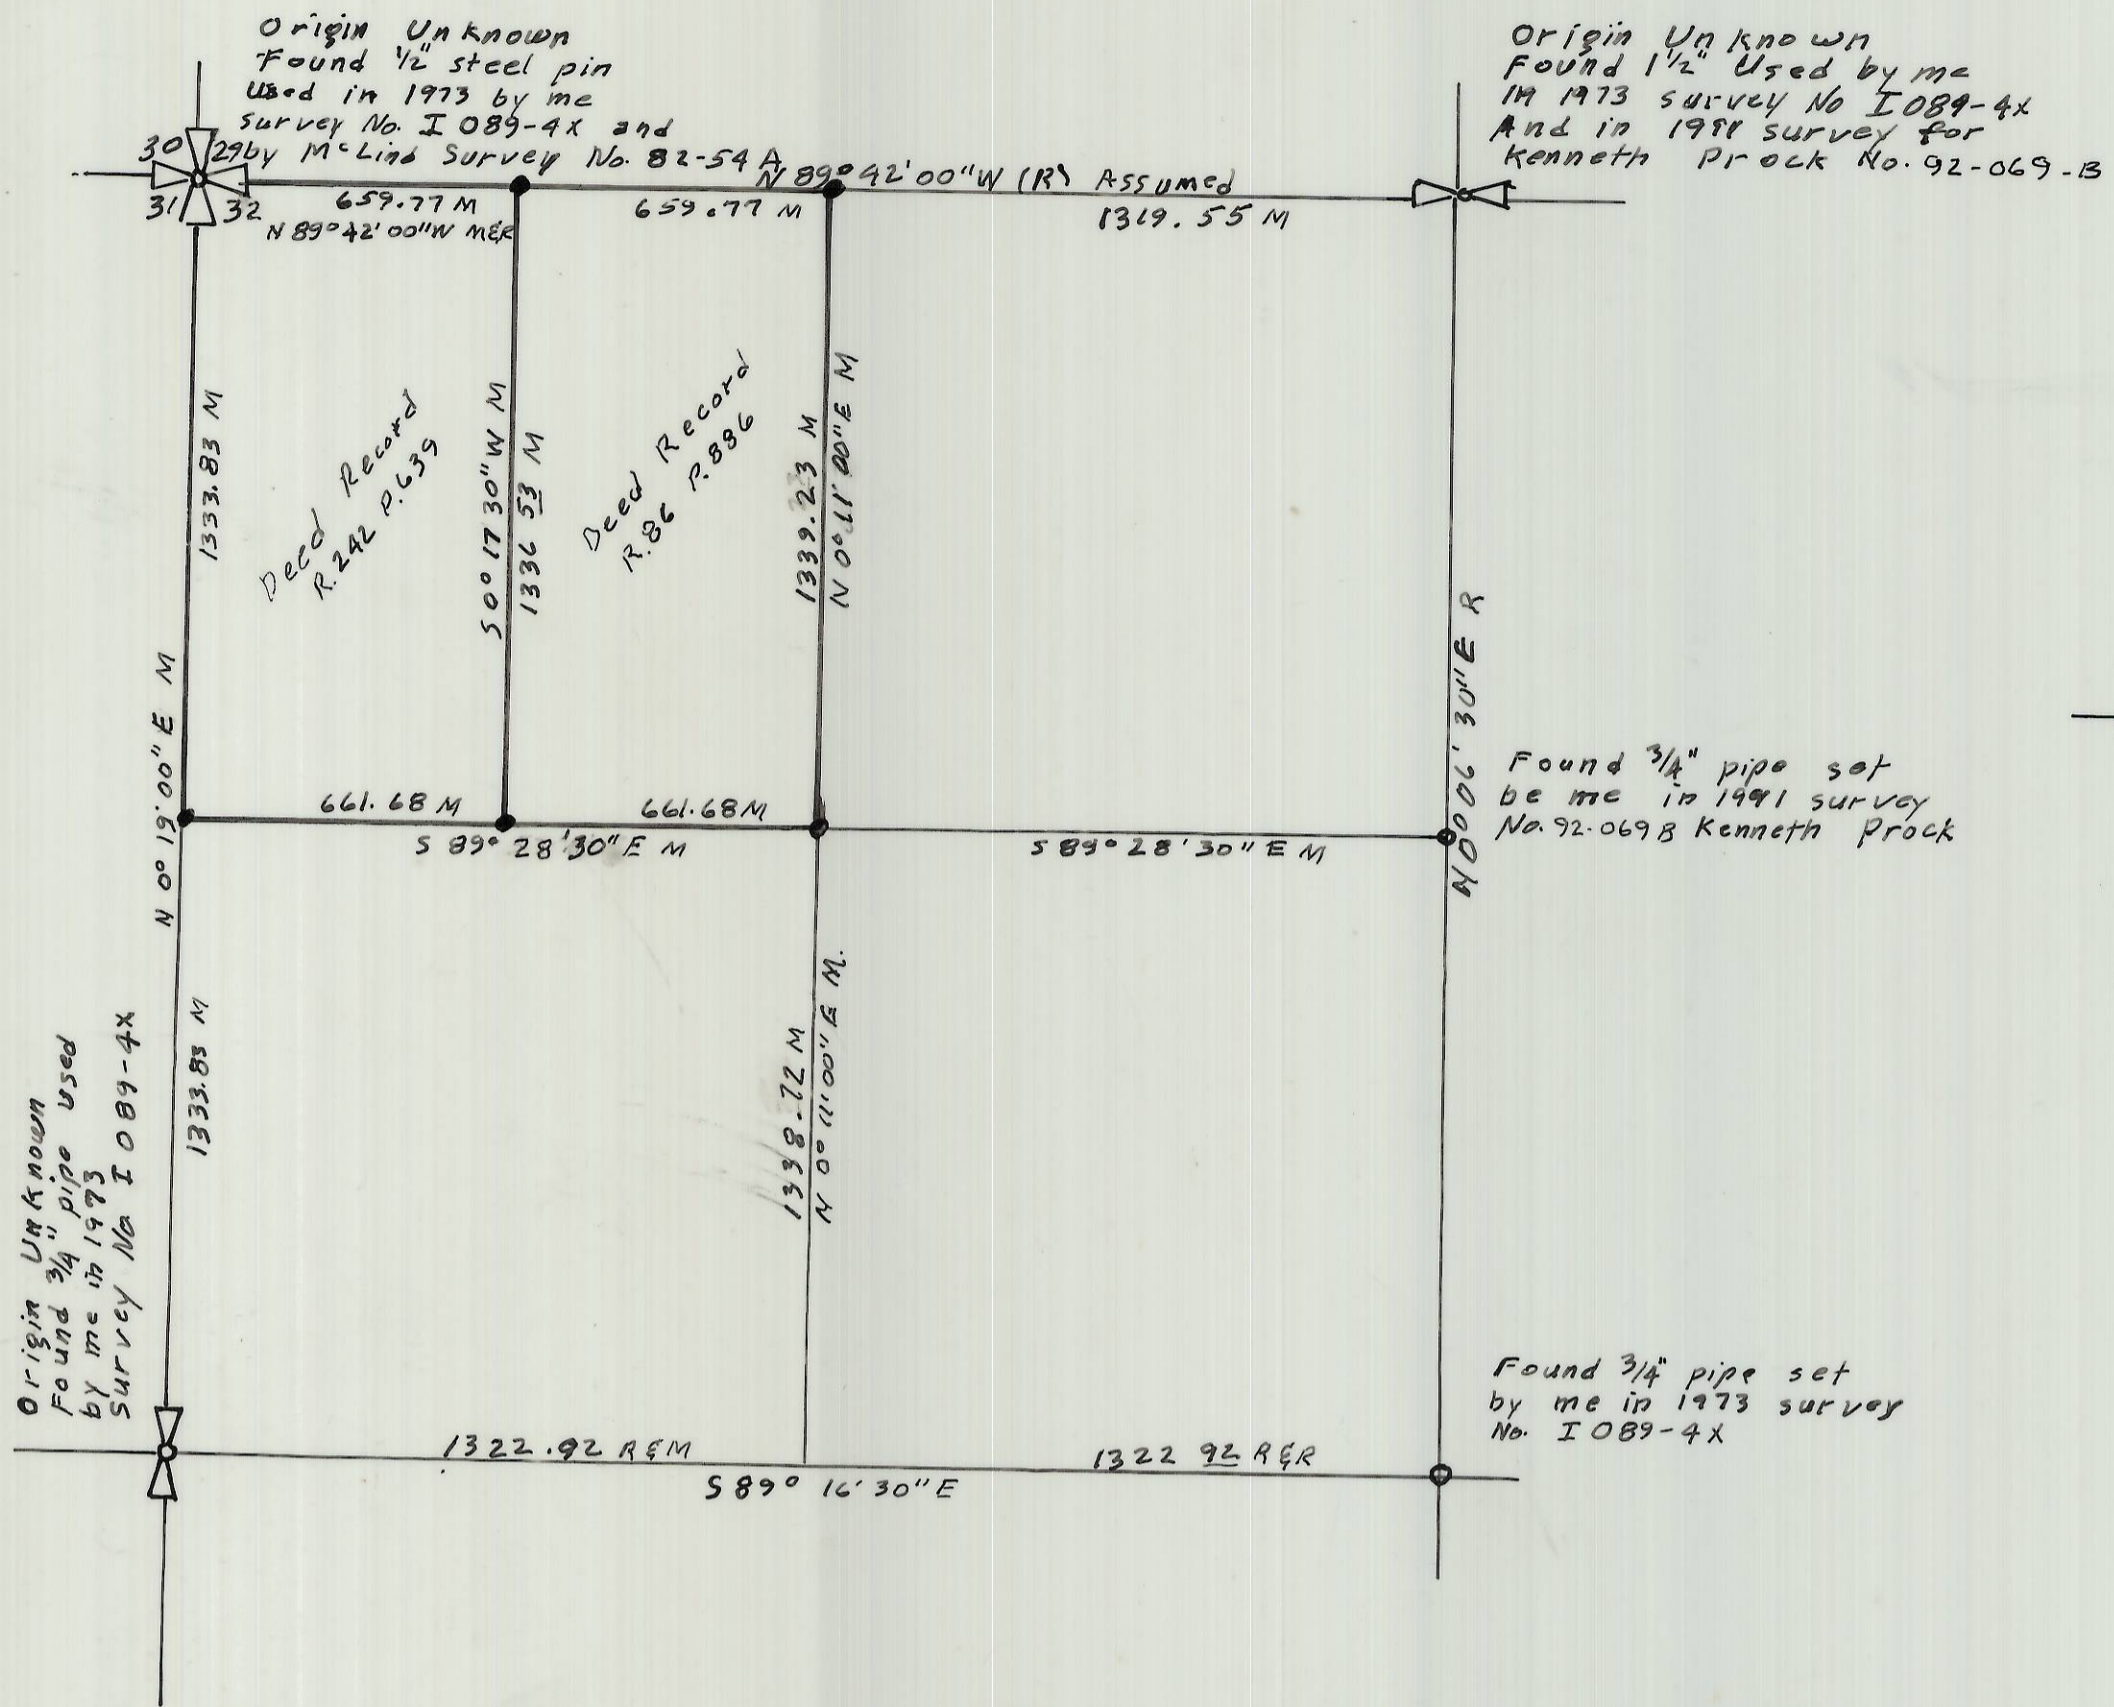 Origin Unknown
Found 1/2" steel pin
Used in 1973 by me
survey No. I 089-4X and
by McLind Survey No. 82-54 A
30 29
31 32
Origin Unknown
Found 1 1/2" Used by me
in 1973 survey No I 089-4X
And in survey for
Kenneth Prock No. 92-069-B
N 89° 42' 00" W (R) Assumed
659.77 M
659.77 M
1319.55 M
N 89° 42' 00" W M&R
1333.83 M
Deed Record
R. 242 P. 639
S 0° 17 30" W M
1336 53 M
Deed Record
R. 86 P. 886
1339.23 M
N 0° 11' 00" E M
N 0° 06' 30" E R
N 0° 19' 00" E M
661.68 M
661.68 M
S 89° 28' 30" E M
S 89° 28' 30" E M
Found 3/4" pipe set
be me in 1991 survey
No. 92-069 B Kenneth Prock
1333.83 M
1338.72 M
N 0° 11' 00" E M.
Origin Unknown
Found 3/4" pipe used
by me in 1973
Survey No I 089-4X
1322.92 R&M
1322 92 R&R
S 89° 16' 30" E
Found 3/4" pipe set
by me in 1973 survey
No. I 089-4X